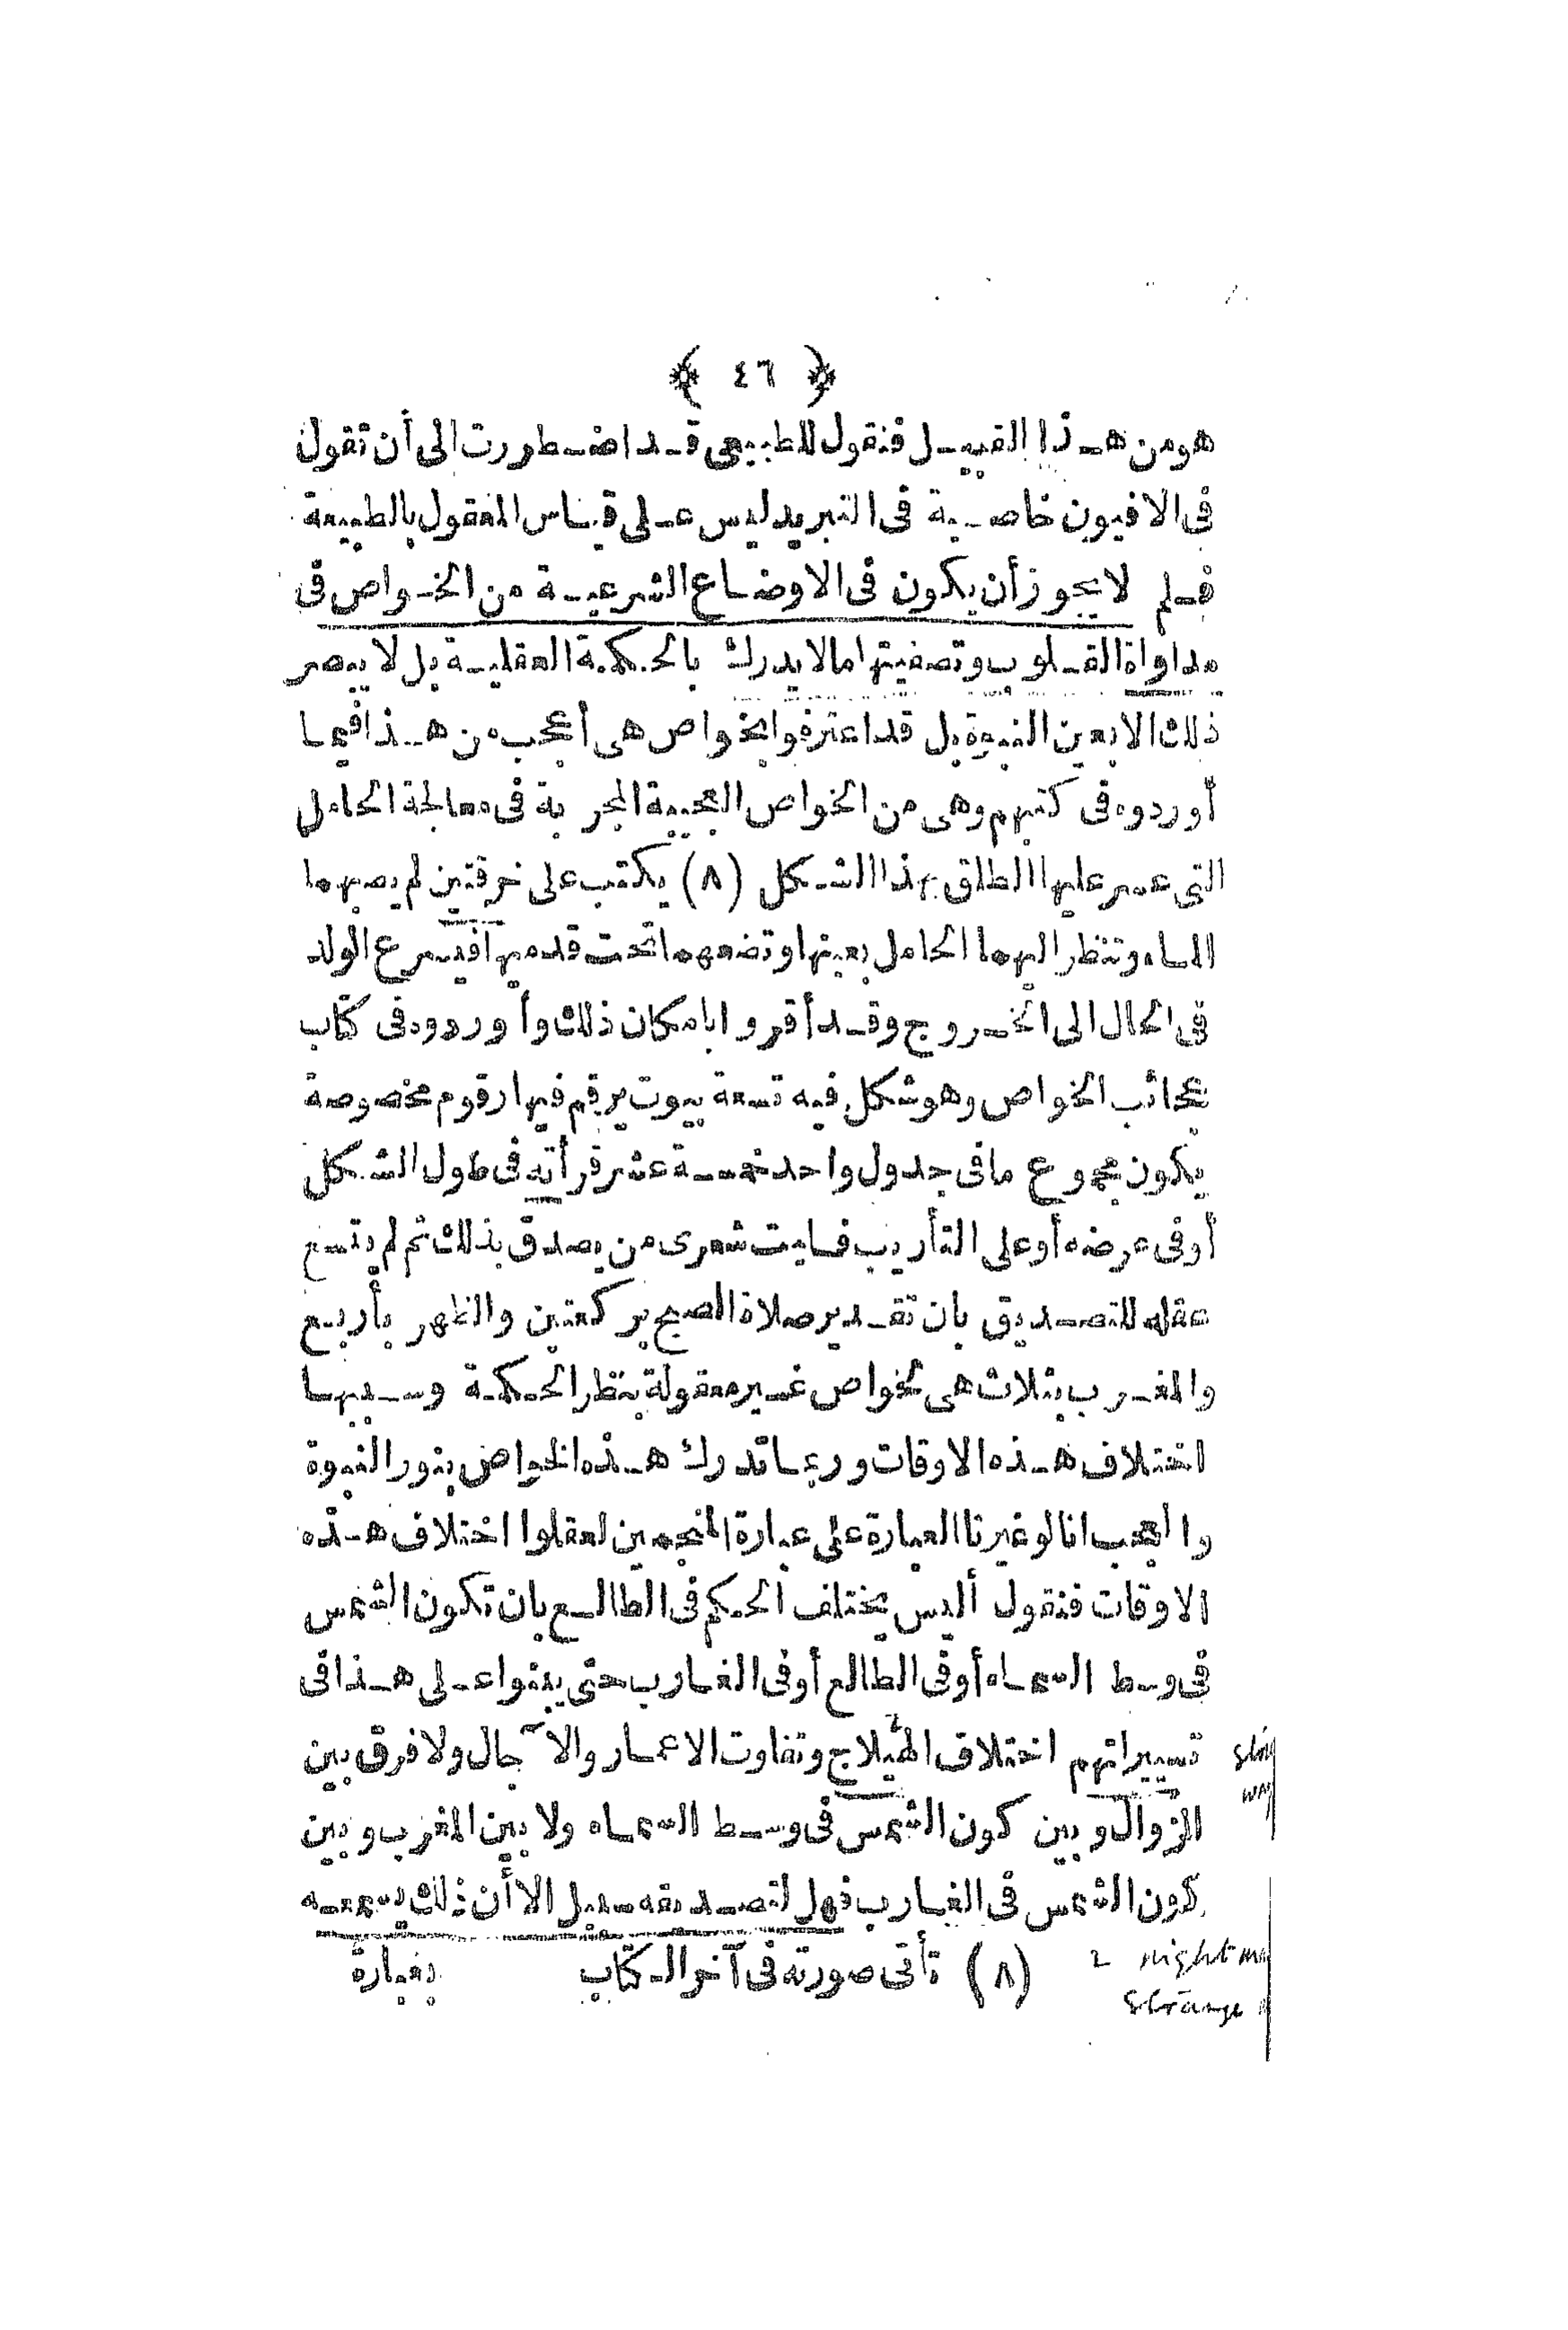 ﴿ ٤٦ ﴾
هو من هـذا القبيـل فنقول للطبيعى قـد اضـطررت الى أن تقول
فى الافيون خاصـية فى التبريد ليس عـلى قيـاس المعقول بالطبيعة
فـلم لا يجوز أن يكون فى الاوضـاع الشرعيـة من الخـواص فى
مداواة القـلوب وتصفيتها ما لا يدرك بالحكمة العقليـة بل لا يبصر
ذلك الا بعين النبوة بل قد اعترفوا بخواص هى أعجب من هـذا فيما
أوردوه فى كتبهم وهى من الخواص العجيبة المجربة فى معالجة الحامل
التى عسر عليها الطلق بهذا الشـكل (٨) يكتب على خرقتين لم يصبهما
المـاء وتنظر اليهما الحامل بعينها وتضعهما تحت قدميها فيسرع الولد
فى الحال الى الخـروج وقـد أقروا بامكان ذلك وأوردوه فى كتاب
عجائب الخواص وهو شكل فيه تسعة بيوت يرقم فيها رقوم مخصوصة
يكون مجموع ما فى جدول واحد خمسـة عشر قرأته فى طول الشـكل
أو فى عرضه أو على التأريب فـليت شعرى من يصدق بذلك ثم لم يتسع
عقله للتصـديق بان تقـدير صلاة الصبح بركعتين والظهر بأربـع
والمغـرب بثلاث هى لخواص غـير معقولة بنظر الحـكمـة وسـببها
اختلاف هـذه الاوقات وربمـا تدرك هـذه الخواص بنور النبوة
والعجب انا لو غيرنا العبارة على عبارة المنجمين لعقلوا اختلاف هـذه
الاوقات فنقول أليس يختلف الحـكم فى الطالـع بان تكون الشمس
فى وسـط السمـاء أو فى الطالع أو فى الغـارب حتى يبنوا عـلى هـذا فى
تسييراتهم اختلاف الهيلاج وتفاوت الاعمـار والآجال ولا فرق بين
الزوال وبين كون الشمس فى وسـط السمـاء ولا بين المغرب وبين
كون الشمس فى الغـارب فهل لتصـديقه سبيل الا أن ذلك يسمعـه
(٨) تأتى صورته فى آخر الـكتاب بعبارة
2 night
Strange